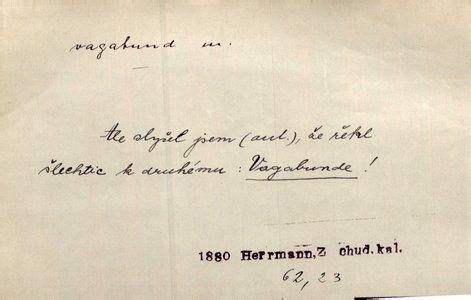 vagabund m.
Ale slyšel jsem (aut.), že řekl
šlechtic k druhému: Vagabunde!
1880 Herrmann,Z chud.kal.
62, 23